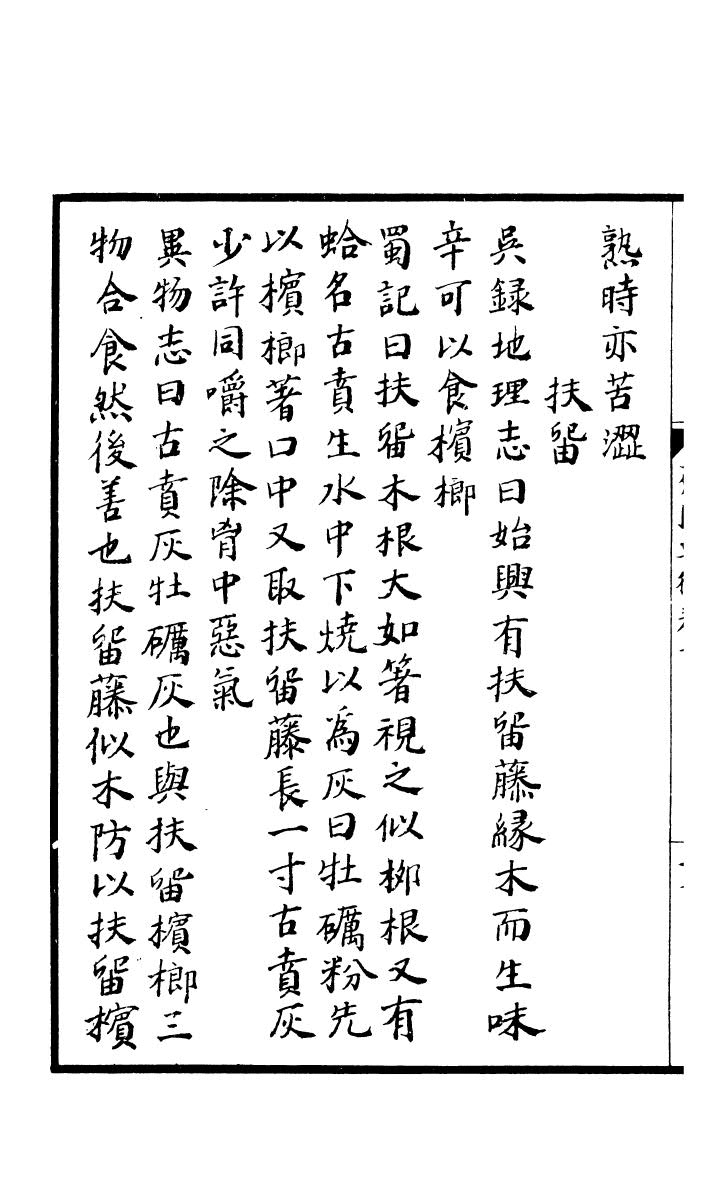 熟時亦苦澀
扶畱
呉録地理志曰始興有扶畱藤縁木而生味
辛可以食檳榔
蜀記曰扶畱木根大如箸視之似栁根又有
蛤名古賁生水中下燒以為灰曰牡礪粉先
以檳榔著口中又取扶畱藤長一寸古賁灰
少許同嚼之除胷中惡氣
異物志曰古賁灰牡礪灰也與扶畱檳榔三
物合食然後善也扶畱藤似木防以扶畱檳